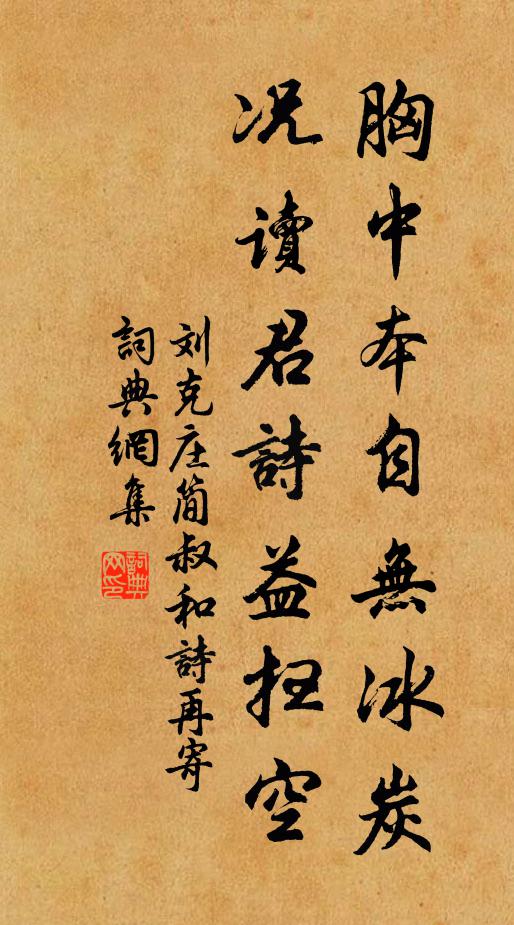 胸中本自無冰炭
况讀君詩益扫空
刘克庄簡叔和詩再寄
詞典網集
詞典网印